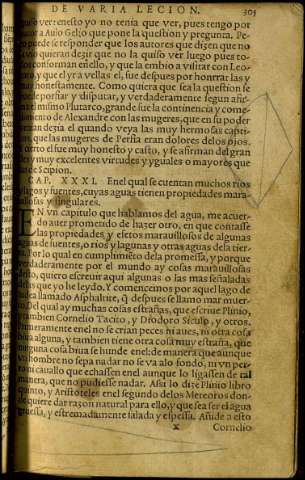 DE VARIA LECION. 305
quiso ver en esto yo no tenia que ver, pues tengo por
a Aulo Gelio que pone la question y pregunta. Pe
puede se responder que los autores que dizen que no
quieran dezir que no la quiso ver luego pues to-
conforman en ello, y que la embio a visitar con Leo-
, y que el yr a vellas el, fue despues por honrrar las y
muy honestamente. Como quiera que sea la question se
puede porfiar y disputar, y verdaderamente segun afir-
el mismo Plutarco, grande fue la continencia y come-
miento de Alexandre con las mugeres, que en su poder
dezia el quando veya las muy hermosas capti-
que las mugeres de Persia eran dolores de los ojos.
otro el fue muy honesto y casto, y se afirman del gran
des y muy excelentes virtudes y yguales o mayores que
de Scipion.
CAP. XXXI. En el qual se cuentan muchos rios
lagos y fuentes, cuyas aguas tienen propiedades mara-
uillosas y singulares.
EN vn capitulo que hablamos del agua, me acuer-
do auer prometido de hazer otro, en que contasse
las propriedades y efetos marauillosos de algunas
aguas de fuentes, o rios y lagunas y otras aguas de la tier-
ra. Por lo qual en cumplimiẽto de la promessa, y porque
verdaderamente por el mundo ay cosas marauillosas
desto, quiero escreuir aqui algunas o las mas señaladas
de las que yo he leydo. Y comencemos por aquel lago de
Iudea llamado Asphaltite, q̃ despues se llamo mar muer-
to. Del qual ay muchas cosas estrañas, que escriue Plinio,
y tambien Cornelio Tacito, y Diodoro Siculo, y otros.
Primeramente en el no se crian peces ni aues, ni otra cosa
biua alguna, y tambien tiene otra cosa muy estraña, que
ninguna cosa biua se hunde en el: de manera que aunque
vn hombre no sepa nadar no se va al fondo, ni vn per-
ro ni cauallo que echassen en el aunque lo ligassen de tal
manera, que no pudiesse nadar. Assi lo dize Plinio libro
quinto, y Aristoteles en el segundo de los Meteoros don-
de quiere dar razon natural para ello, y que sea ser el agua
gruessa, y estremadamente salada y espessa. Añade a esto
x Cornelio